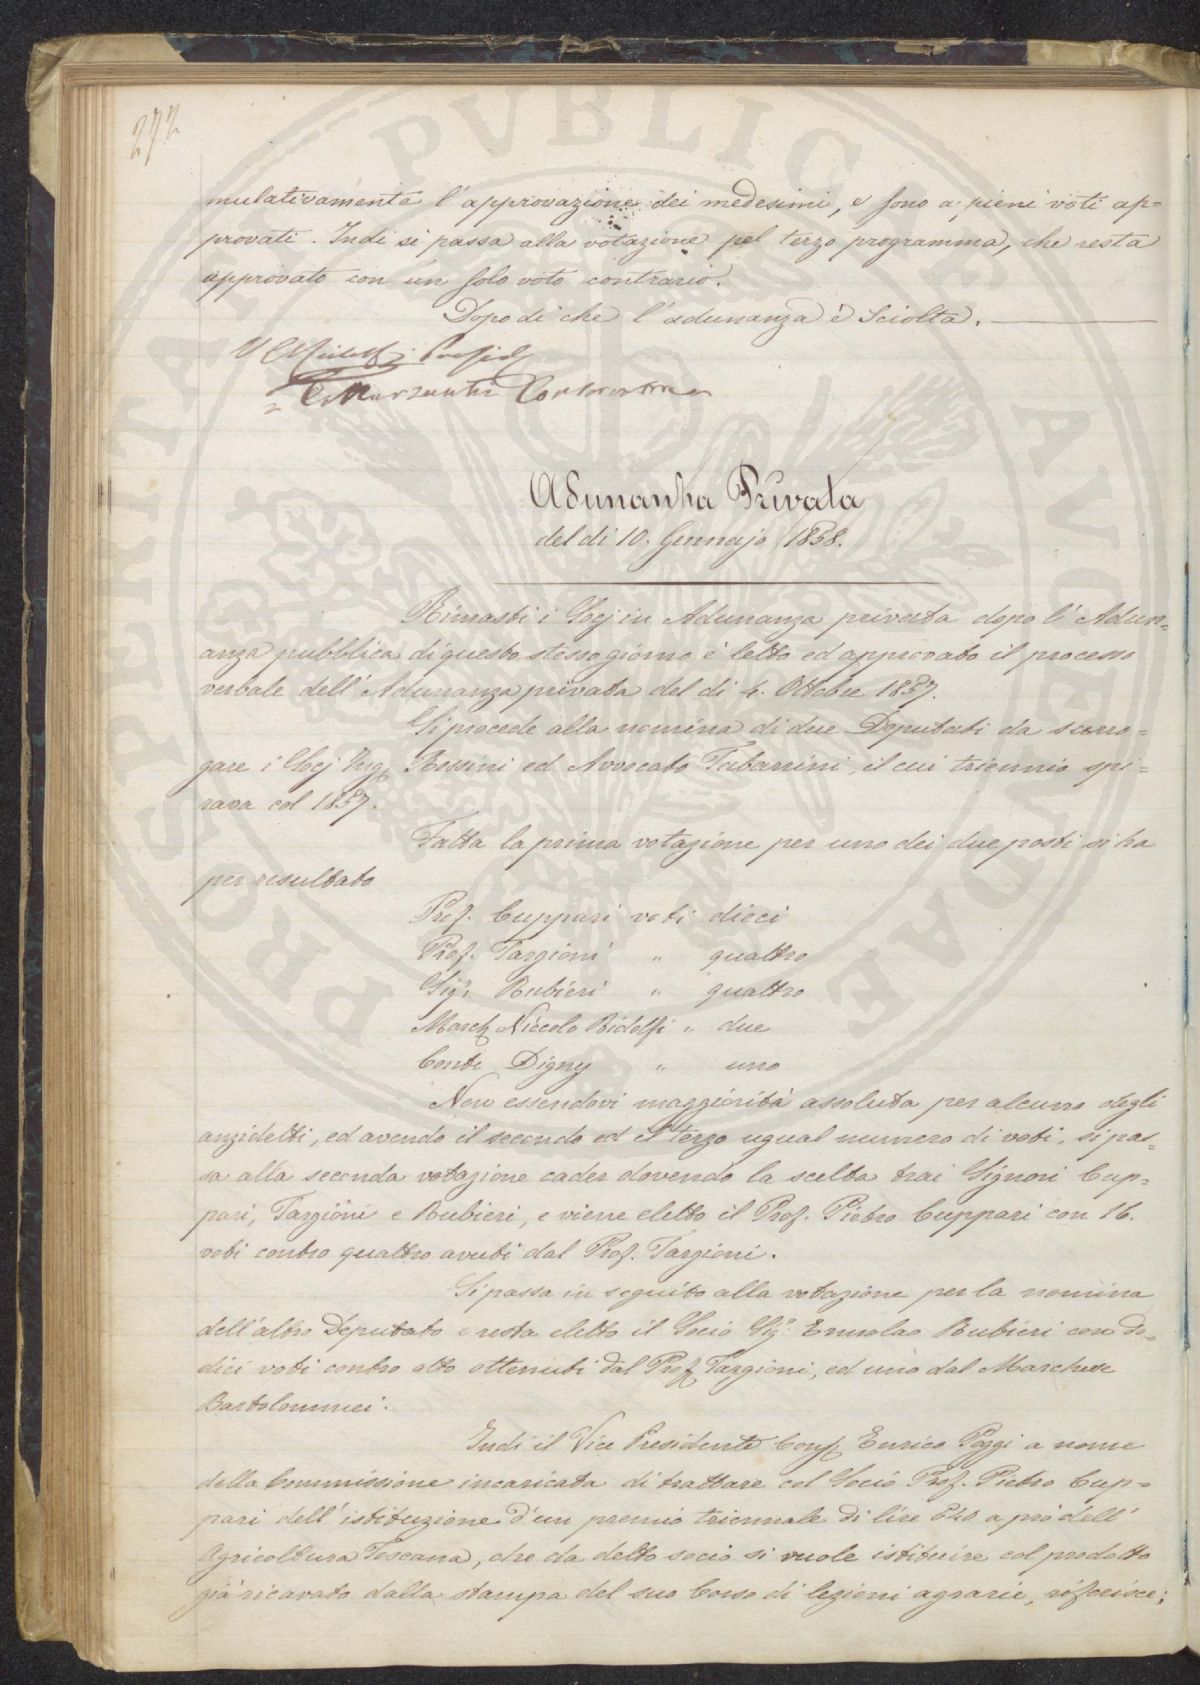 272
mulativamente l'approvazione dei medesimi, e sono a pieni voti ap=
provati. Indi si passa alla votazione pel terzo programma, che resta
approvato con un solo voto contrario.
Dopo di che l'adunanza è sciolta.
Adunanza Privata
del dì 10. Gennajo 1858.
Rimasti i Socj in Adunanza privata dopo l'Adun=
anza pubblica di questo stesso giorno è letto ed approvato il processo
verbale dell'Adunanza privata del dì 4. Ottobre 1857.
Si procede alla nomina di due Deputati da surro=
gare i Socj Ing. Rossini ed Avvocato Tabarrini, il cui triennio spi=
rava col 1857.
Fatta la prima votazione per uno dei due posti si ha
per resultato
Prof. Cuppari voti dieci
Prof. Targioni " quattro
Sigr. Rubieri " quattro
March. Niccolo Ridolfi " due
Conte Digny " uno
Non essendovi maggiorità assoluta per alcuno degli
anzidetti, ed avendo il secondo ed il terzo ugual numero di voti, si pas=
sa alla seconda votazione cader dovendo la scelta trai Signori Cup=
pari, Targioni e Rubieri, e viene eletto il Prof. Pietro Cuppari con 16.
voti contro quattro avuti dal Prof. Targioni.
Si passa in seguito alla votazione per la nomina
dell'altro Deputato e resta eletto il Socio Sigr. Ermolao Rubieri con do=
dici voti contro otto ottenuti dal Prof. Targioni, ed uno dal Marchese
Bartolommei.
Indi il Vice Presidente Cons. Enrico Poggi a nome
della Commissione incaricata di trattare col Socio Prof. Pietro Cup=
pari dell'istituzione d'un premio triennale di lire 840 a prò dell'
Agricoltura Toscana, che da detto socio si vuole istituire col prodotto
già ricavato dalla stampa del suo Corso di lezioni agrarie, riferisce;
PROSPERITATI PVBLICAE AVGENDAE